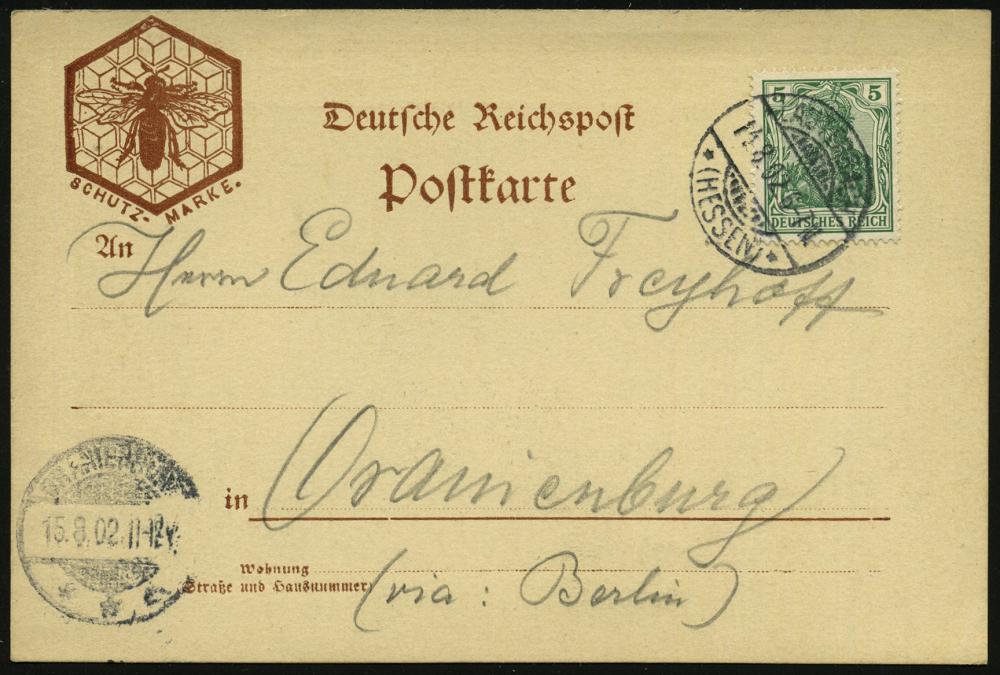 SCHUTZ-MARKE.
Deutsche Reichspost
Postkarte
5 5
DEUTSCHES REICH
(HESSEN)
An Herrn Eduard Freyhoff
in Oranienburg
15.8.02. 11-12V.
Wohnung
(Straße und Hausnummer)
(via: Berlin)